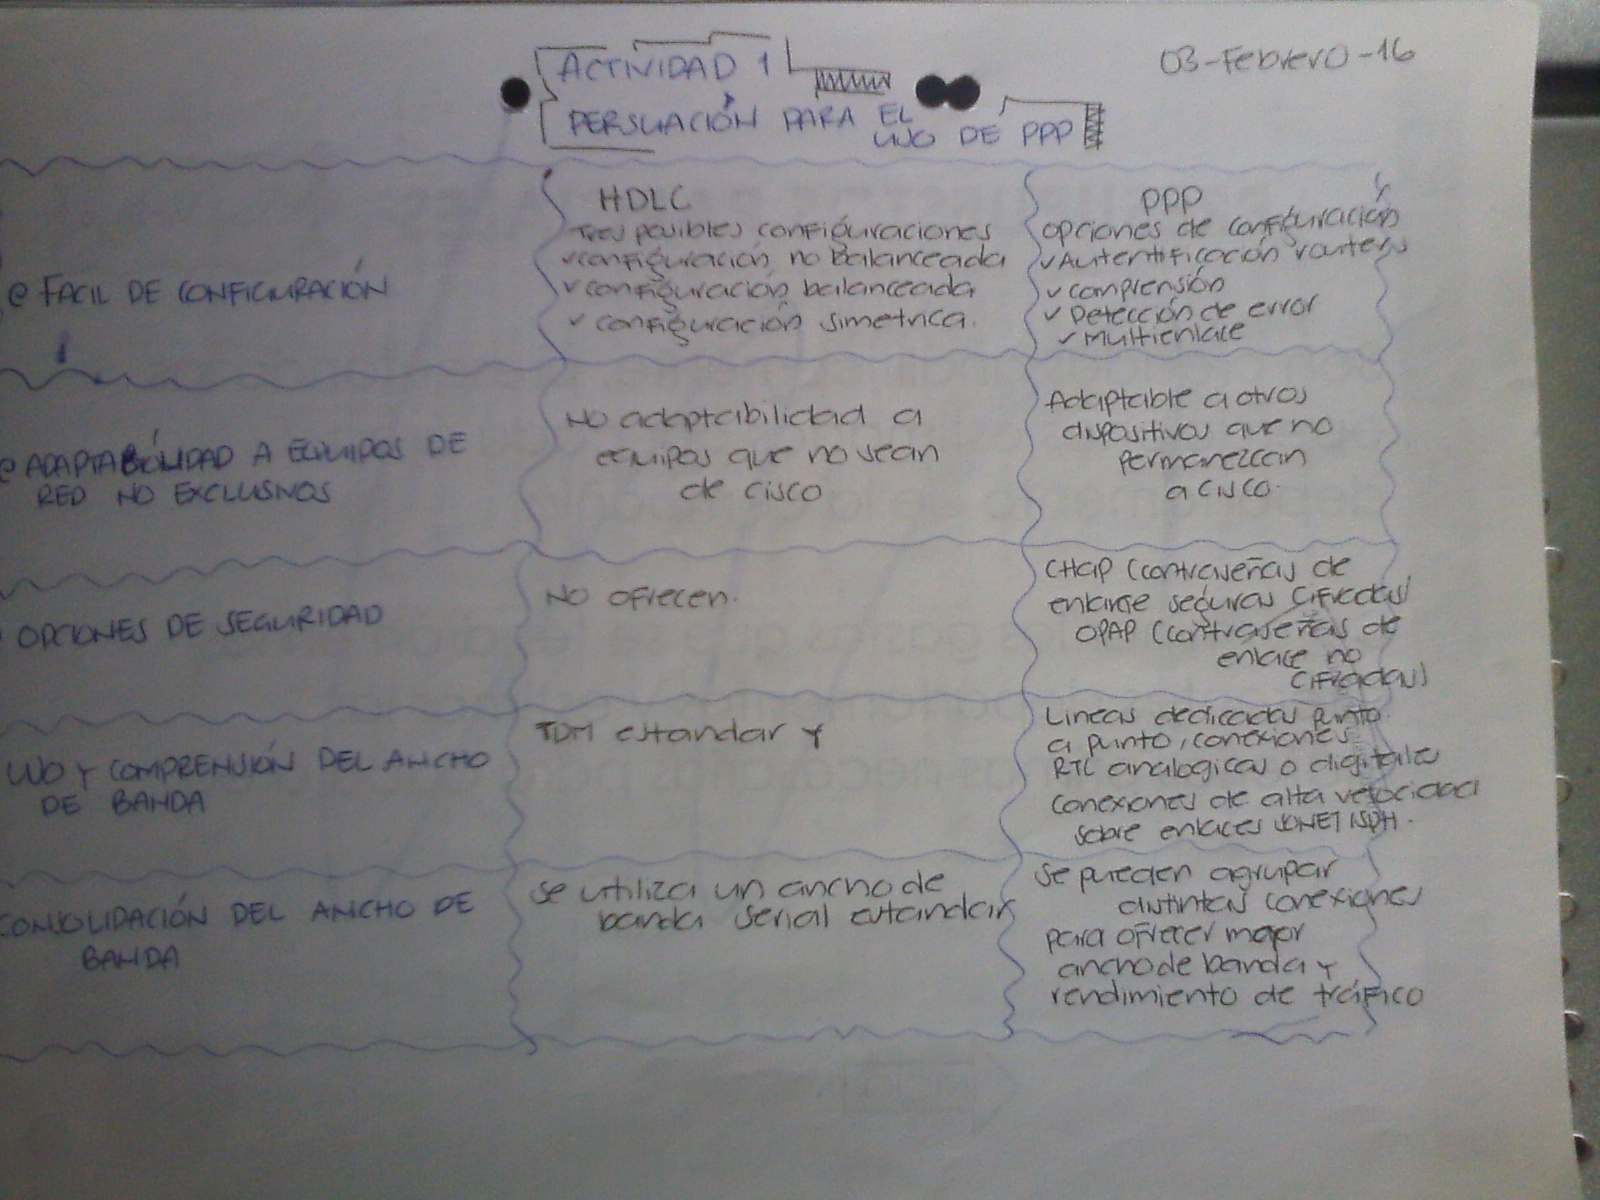 03-Febrero-16
ACTIVIDAD 1
PERSUACIÓN PARA EL
USO DE PPP
HDLC
Tres posibles configuraciones
✓configuración no balanceada
✓ configuración balanceada
✓ configuración simetrica.
PPP
opciones de configuración
✓Autentificación routers
✓ comprensión
✓ Detección de error
✓ Multienlace
@ FÁCIL DE CONFIGURACIÓN
No adaptabilidad a
equipos que no sean
de cisco
Adaptable a otros
dispositivos que no
permanezcan
a cisco.
@ ADAPTABILIDAD A EQUIPOS DE
RED NO EXCLUSIVOS
No ofrecen.
CHAP (contraseñas de
enlace seguras cifradas)
OPAP (contraseñas de
enlace no
cifradas)
OPCIONES DE SEGURIDAD
TDM estandar y
Lineas dedicadas punto
a punto, conexiones
RTC analogicas o digitales
conexiones de alta velocidad
sobre enlaces SONET/SDH.
USO Y COMPRENSIÓN DEL ANCHO
DE BANDA
se utiliza un ancho de
banda serial estandar
se pueden agrupar
distintas conexiones
para ofrecer major
ancho de banda y
rendimiento de tráfico
CONSOLIDACIÓN DEL ANCHO DE
BANDA